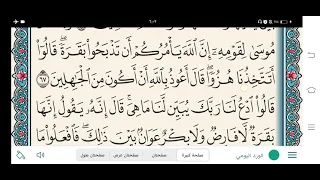 مُوسَىٰ لِقَوْمِهِۦٓ إِنَّ ٱللَّهَ يَأْمُرُكُمْ أَن تَذْبَحُوا۟ بَقَرَةً ۖ قَالُوٓا۟
أَتَتَّخِذُنَا هُزُوًا ۖ قَالَ أَعُوذُ بِٱللَّهِ أَنْ أَكُونَ مِنَ ٱلْجَٰهِلِينَ ٦٧
قَالُوا۟ ٱدْعُ لَنَا رَبَّكَ يُبَيِّن لَّنَا مَا هِىَ ۚ قَالَ إِنَّهُۥ يَقُولُ إِنَّهَا
بَقَرَةٌ لَّا فَارِضٌ وَلَا بِكْرٌ عَوَانٌۢ بَيْنَ ذَٰلِكَ ۖ فَٱفْعَلُوا۟ مَا
الورد اليومي صفحة كبيرة صفحتان صفحتان عرض صفحتان طول